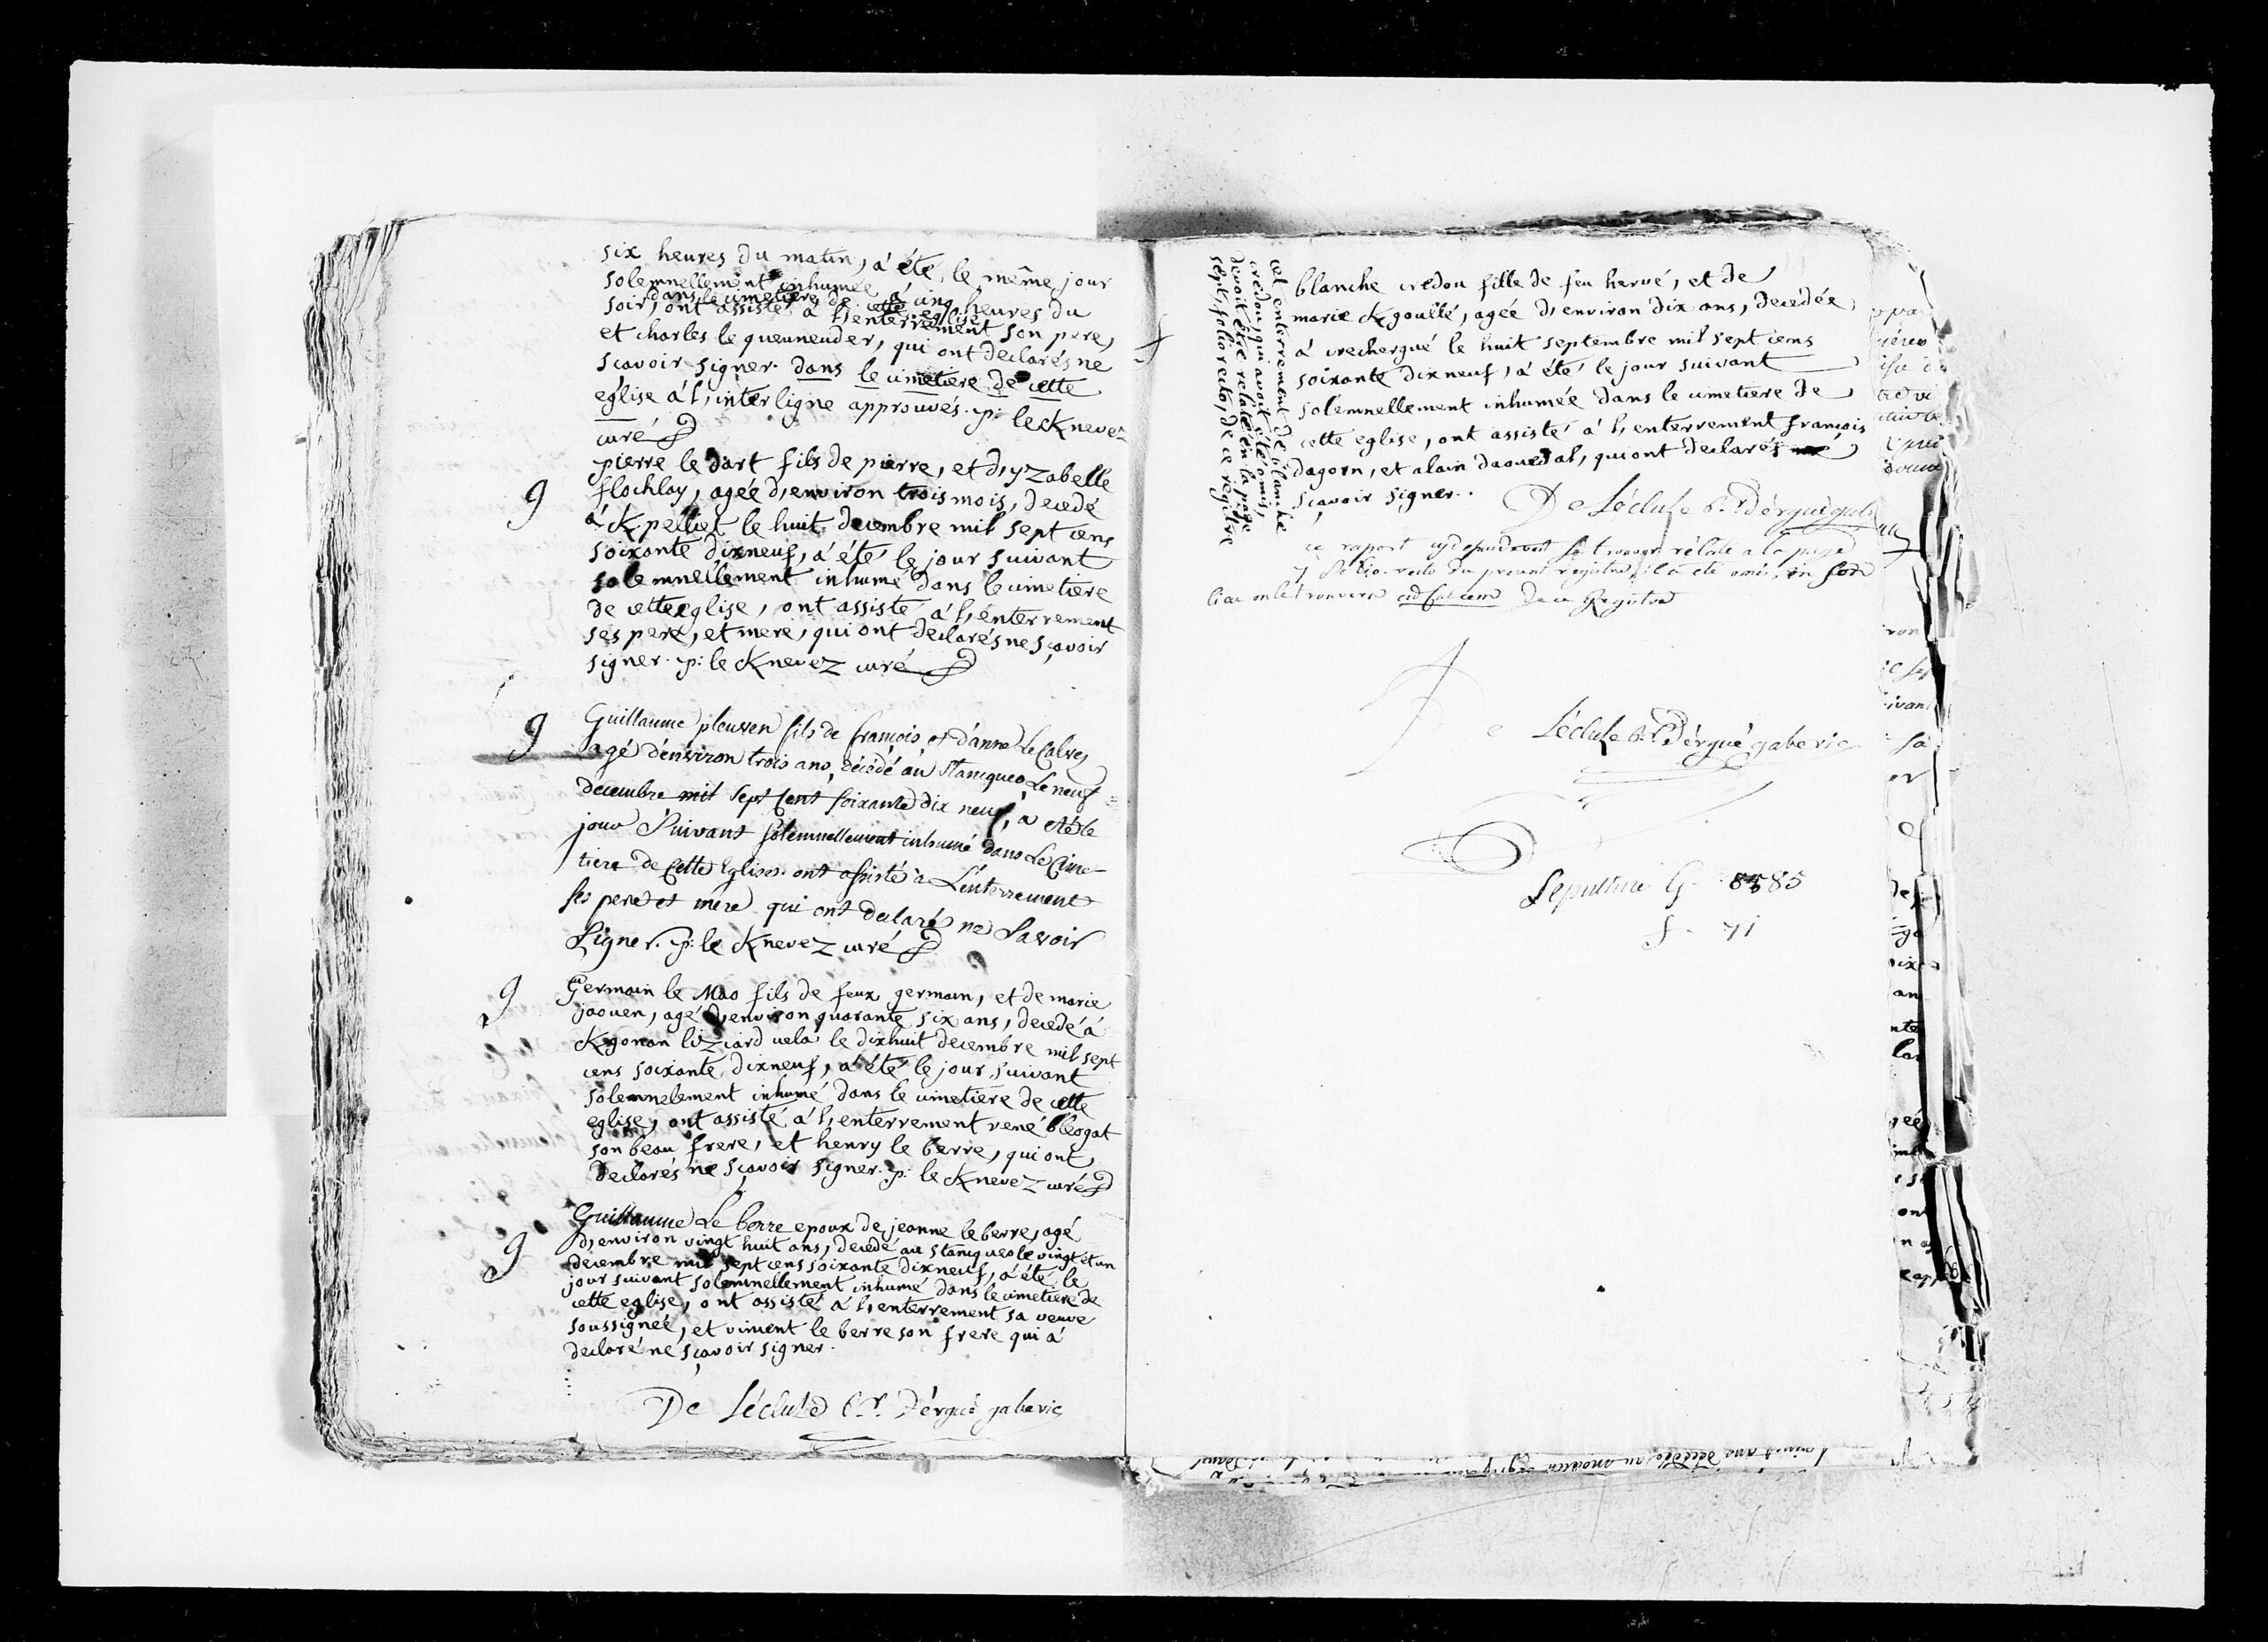 six heures du matin, a été, le même jour
solemnellement inhumée à cinq heures du
dans le cimetiere de cette eglise
soir, ont assisté à l'enterrement son pere,
et charles le queuneuder, qui ont declarés ne
sçavoir signer. dans le cimetiere de cette
eglise à l'interligne approuvés. p: le Knevez
curé
pierre le dart fils de pierre, et d'yzabelle
flochlay, agée d'environ trois mois, decedé
à Kpelliet le huit decembre mil sept cens
soixante dixneuf, a été le jour suivant
solemnellement inhumé dans le cimetiere
de cette eglise, ont assisté à l'enterrement
ses pere, et mere, qui ont declarés ne sçavoir
signer. p: le Knevez curé
g
Guillaume pleuven fils de francois et d'anne Le Calvez
agé d'environ trois ans, décédé au Stancqueo Le neuf
decembre mil Sept Cent soixante dix neuf, a eté le
jour Suivant Solemnellement inhumé dans Le Cime-
tiere de Cette Eglise. ont assisté à L'enterrement
ses pere et mere qui ont declaré ne Savoir
Signer. p: le Knevez curé
g
Germain le Mao fils de feux germain, et de marie
jaouen, agé d'environ quarante six ans, decedé à
Kgonan lizïard uela le dixhuit decembre mil sept
cens soixante dixneuf, a été le jour suivant
solemnelement inhumé dans le cimetiere de cette
eglise, ont assisté à l'enterrement rené bléogat
son beau frere, et henry le berre, qui ont
declarés ne sçavoir signer. p: le Knevez curé
g
Guillaume Le berre epoux de jeanne le berre, agé
d'environ vingt huit ans, decedé au stancqueo le vingt et un
decembre mil sept cens soixante dixneuf, a été le
jour suivant solemnellement inhumé dans le cimetiere de
cette eglise, ont assisté à l'enterrement sa veuve
soussignée, et vincent le berre son frere qui a
declaré ne sçavoir signer.
g
De Lécluse r.r d'érgué gaberic
cet enterrement de blanche
credou, qui avoit été omis,
devoit être relaté en la page
sept, folio recto, de ce registre
blanche credou fille de feu hervé, et de
marie Kgoullé, agée d'environ dix ans, decedée
à crechergué le huit septembre mil sept cens
soixante dixneuf, a été le jour suivant
solemnellement inhumée dans le cimetiere de
cette eglise, ont assisté à l'enterrement francois
dagorn, et alain daouedal, qui ont declarés
sçavoir signer.
De Lécluse r.r d'érgué gab
ce raport se trouver rélaté a la page
7 recto du present registre, il a eté omis,
on le trouvera de ce Registre
De Lécluse r.r d'érgué gaberic
Sepulture G. 8585
f. 71